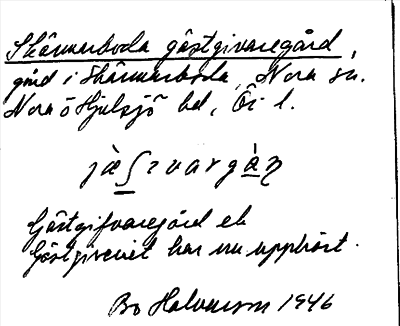 Skärmarboda gästgivaregård,
gård i Skärmarboda, Nora sn.
Nora ö Hjulsjö bd, Ör l.
jàʃɩvargàn
Gästgifvaregård el.
Gästgiveriet har nu upphört.
Bo Halvarson 1946